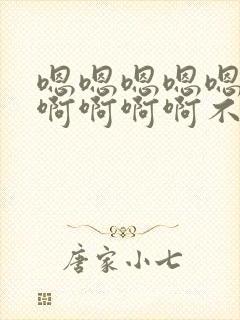 嗯嗯嗯嗯嗯
啊啊啊啊不
唐家小七